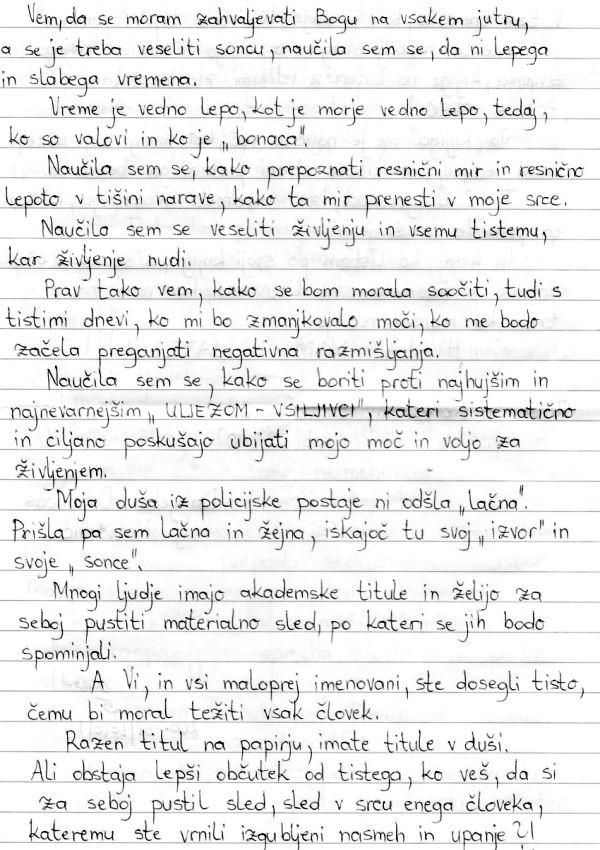 Vem, da se moram zahvaljevati Bogu na vsakem jutru,
a se je treba veseliti soncu, naučila sem se, da ni lepega
in slabega vremena.
Vreme je vedno lepo, kot je morje vedno lepo, tedaj,
ko so valovi in ko je „bonaca".
Naučila sem se, kako prepoznati resnični mir in resnično
lepoto v tišini narave, kako ta mir prenesti v moje srce.
Naučila sem se veseliti življenju in vsemu tistemu,
kar življenje nudi.
Prav tako vem, kako se bom morala soočiti, tudi s
tistimi dnevi, ko mi bo zmanjkovalo moči, ko me bodo
začela preganjati negativna razmišljanja.
Naučila sem se, kako se boriti proti najhujšim in
najnevarnejšim „ULJEZOM - VSILJIVCI", kateri sistematično
in ciljano poskušajo ubijati mojo moč in voljo za
življenjem.
Moja duša iz policijske postaje ni odšla „lačna".
Prišla pa sem lačna in žejna, iskajoč tu svoj „izvor" in
svoje „sonce".
Mnogi ljudje imajo akademske titule in želijo za
seboj pustiti materialno sled, po kateri se jih bodo
spominjali.
A Vi, in vsi maloprej imenovani, ste dosegli tisto,
čemu bi moral težiti vsak človek.
Razen titul na papirju, imate titule v duši.
Ali obstaja lepši občutek od tistega, ko veš, da si
za seboj pustil sled, sled v srcu enega človeka,
kateremu ste vrnili izgubljeni nasmeh in upanje?!